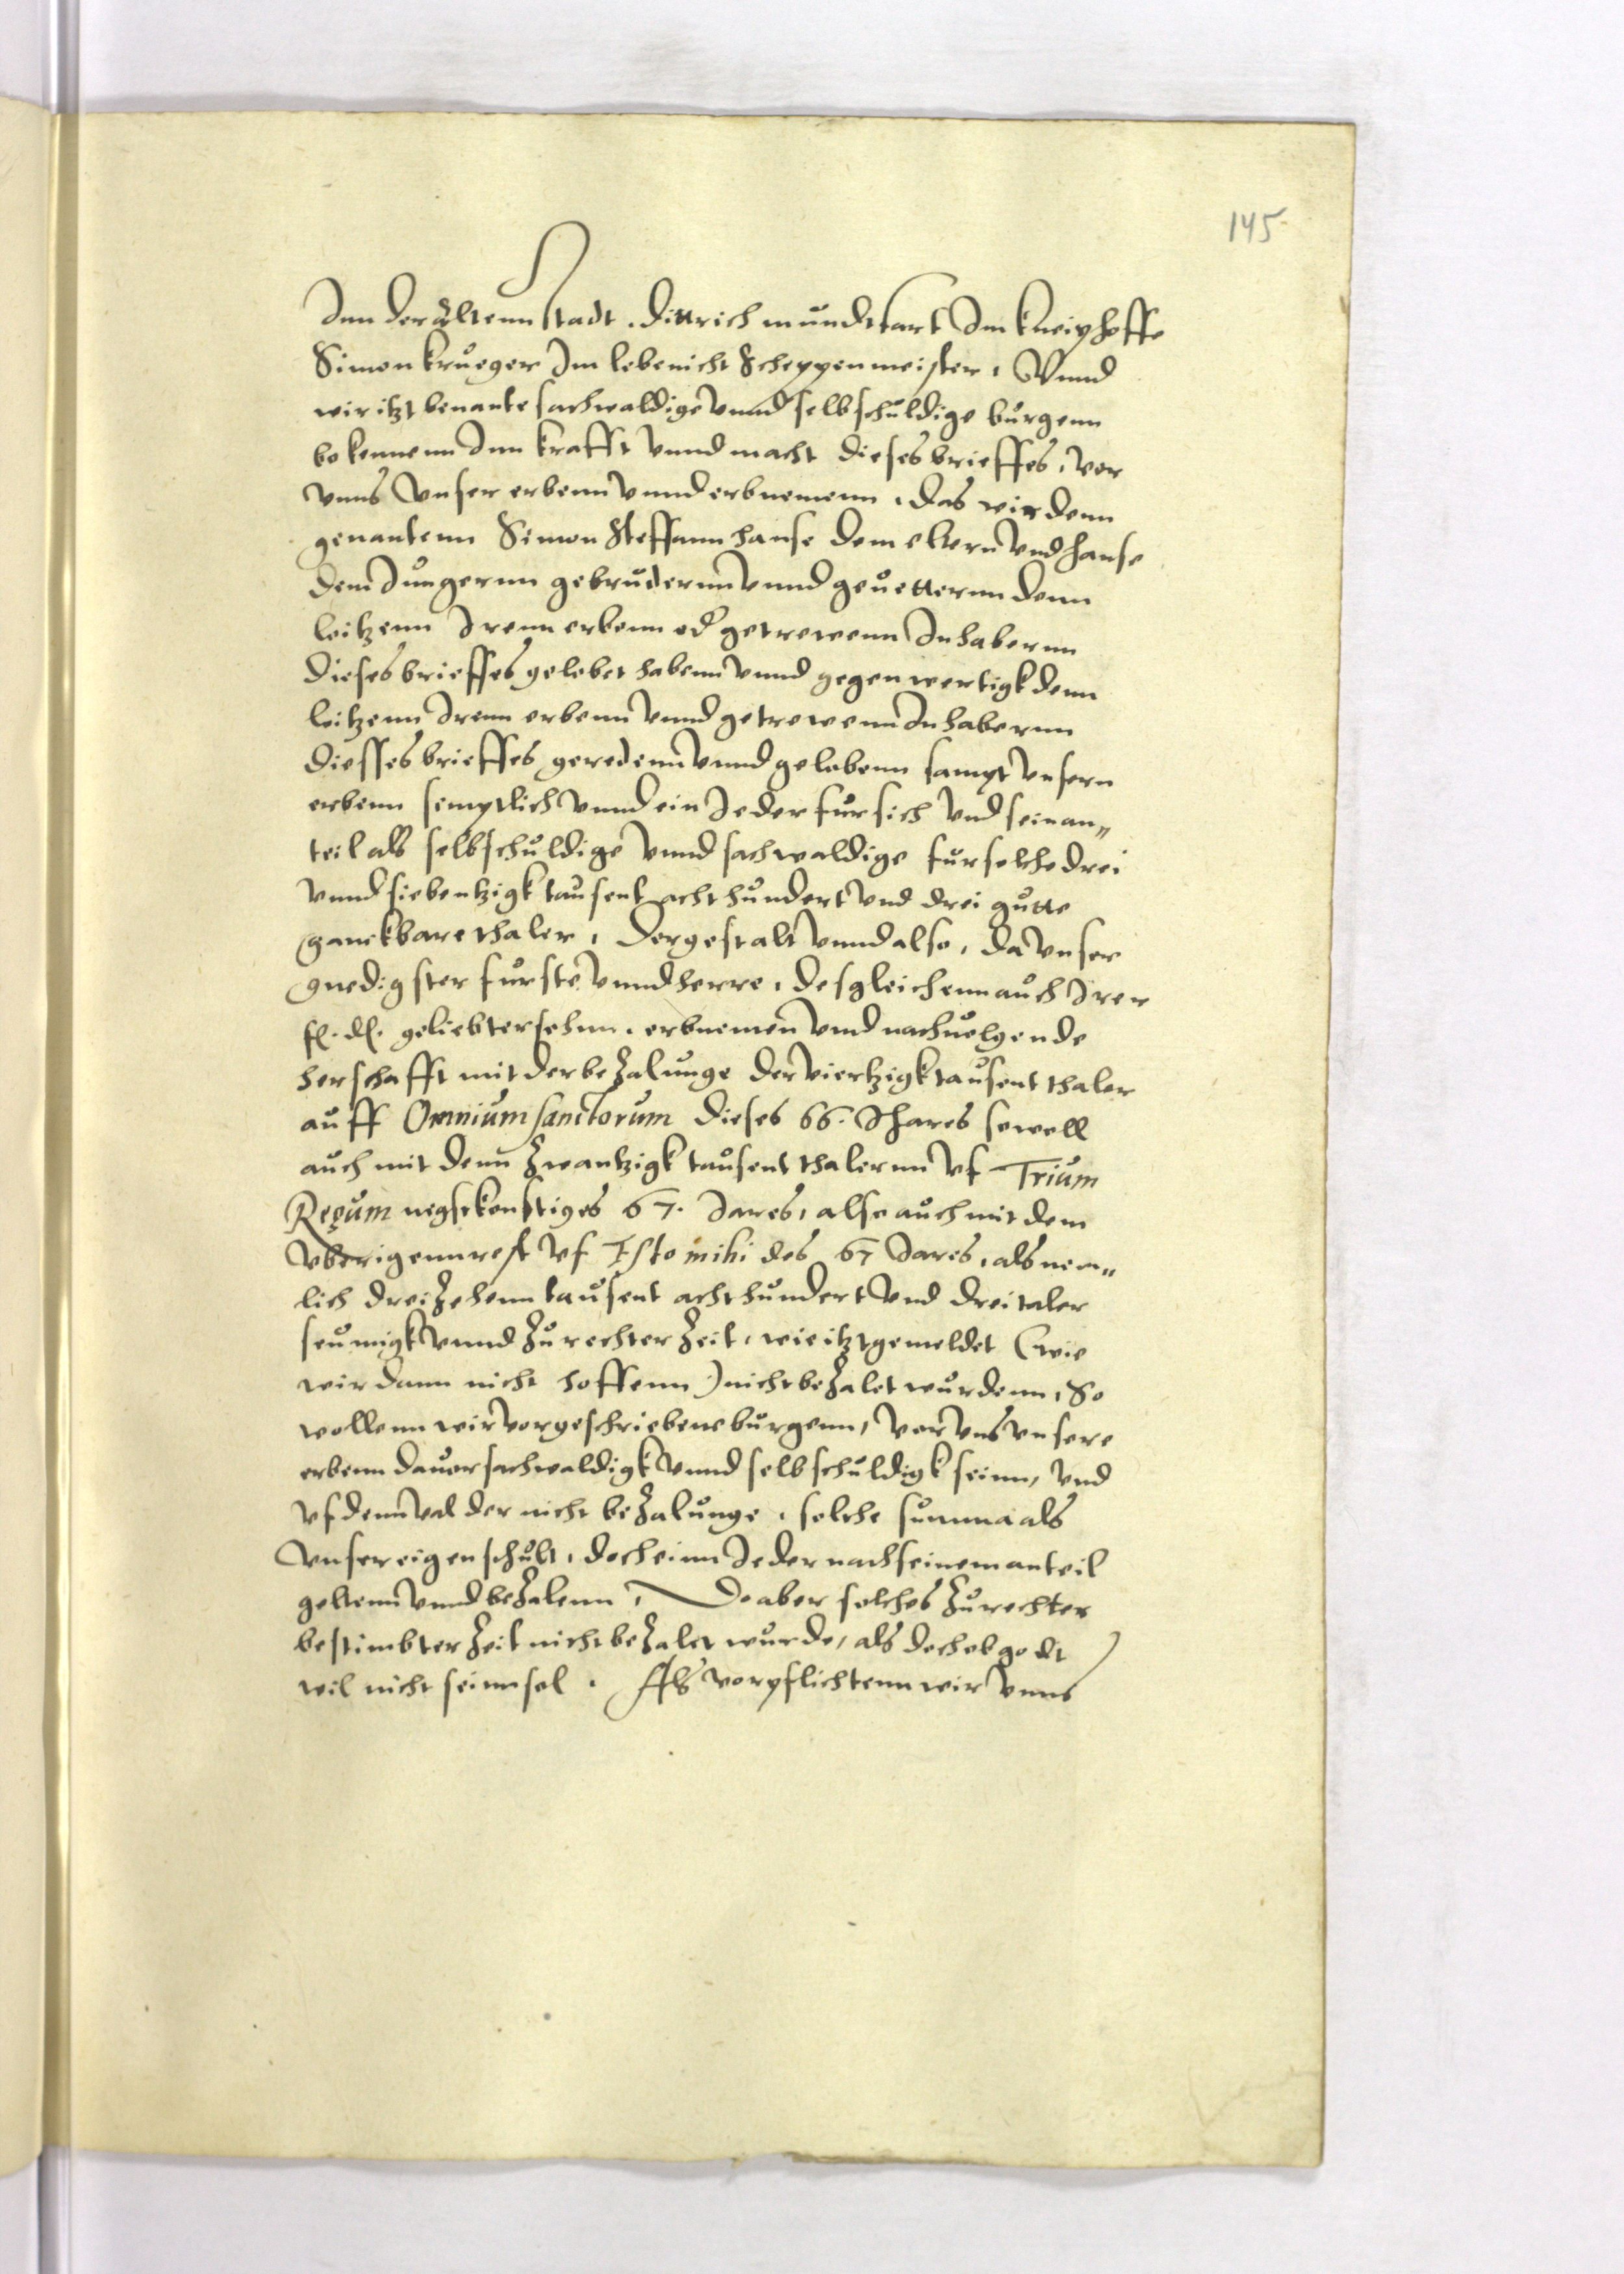 145
Inn der Altenn stadt. Dittrich mundtfart Im kneiphoffe
Simon krueger Im lebenicht Scheppenmeister, Vnnd
wir itzt benante sachwaldige vnnd selbschuldige burgenn
bekennenn Inn krafft vnnd macht dieses brieffes, vor
vnns vnser erbenn vnnd erbnemenn, das wir denn
genantenn Simon Steffann hanse dem eltern vnd hanse
dem Jungernn gebrudernn vnnd geuetternn denn
loitzenn Irenn erbenn od getrewenn Inhabernn
dieses brieffes gelobet habenn vnnd gegenwertigk denn
loitzenn Irenn erbenn vnnd getrewenn Inhabernn
diesses brieffes geredenn vnnd gelobenn sampt vnsern
erbenn semptlich vnnd ein Jeder fur sich vnd sein an„
teil als selbschuldige vnnd sachwaldige fur solche drei
vnnd siebentzigk tausent achthundert vnd drei gutte
ganckbare thaler, Dergestalt vnnd also, da vnser
gnedigster furste vnnd herre, desgleichenn auch Irer
fl. dl. geliebter sohnn, erbnemen vnnd nachuolgende
herschafft mit der bezalunge der viertzigk tausent thaler
auff Omnium sanctorum dieses 66. Jhares sowoll
auch mit denn zwantzigk tausent thalernn vf Trium
Regum negstkonftiges 67. Jares, also auch mit dem
vberigenn rest vf Esto mihi des 67 Jares, als nem„
lich dreizehenn tausent achthundert vnd drei taler
seumigk vnnd zu rechter zeit, wie itzt gemeldet (wie
wir dann nicht hoffenn) nicht bezalet wurdenn, So
wollenn wir vorgeschriebene burgenn, vor vns vnsere
erbenn dauor sachwaldigk vnnd selbschuldigk seinn, vnd
vf denn val der nicht bezalunge, solche summa als
vnser eigen schult, doch einn Jeder nach seinem anteil
geltenn vnnd bezalenn, Do aber solches zu rechter
bestimbter zeit nicht bezalet wurde, als doch ob godt
wil nicht seinn sol. Als vorpflichtenn wir vnns